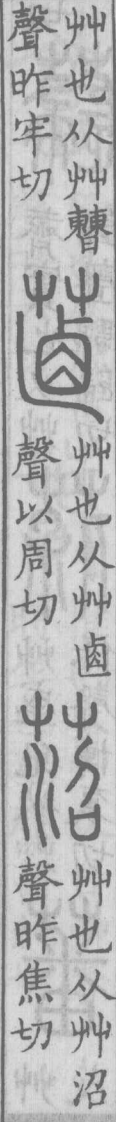 艸也从艸𣍘
聲昨牢切
艸也从艸卥
聲以周切
菬
艸也从艸沼
聲昨焦切